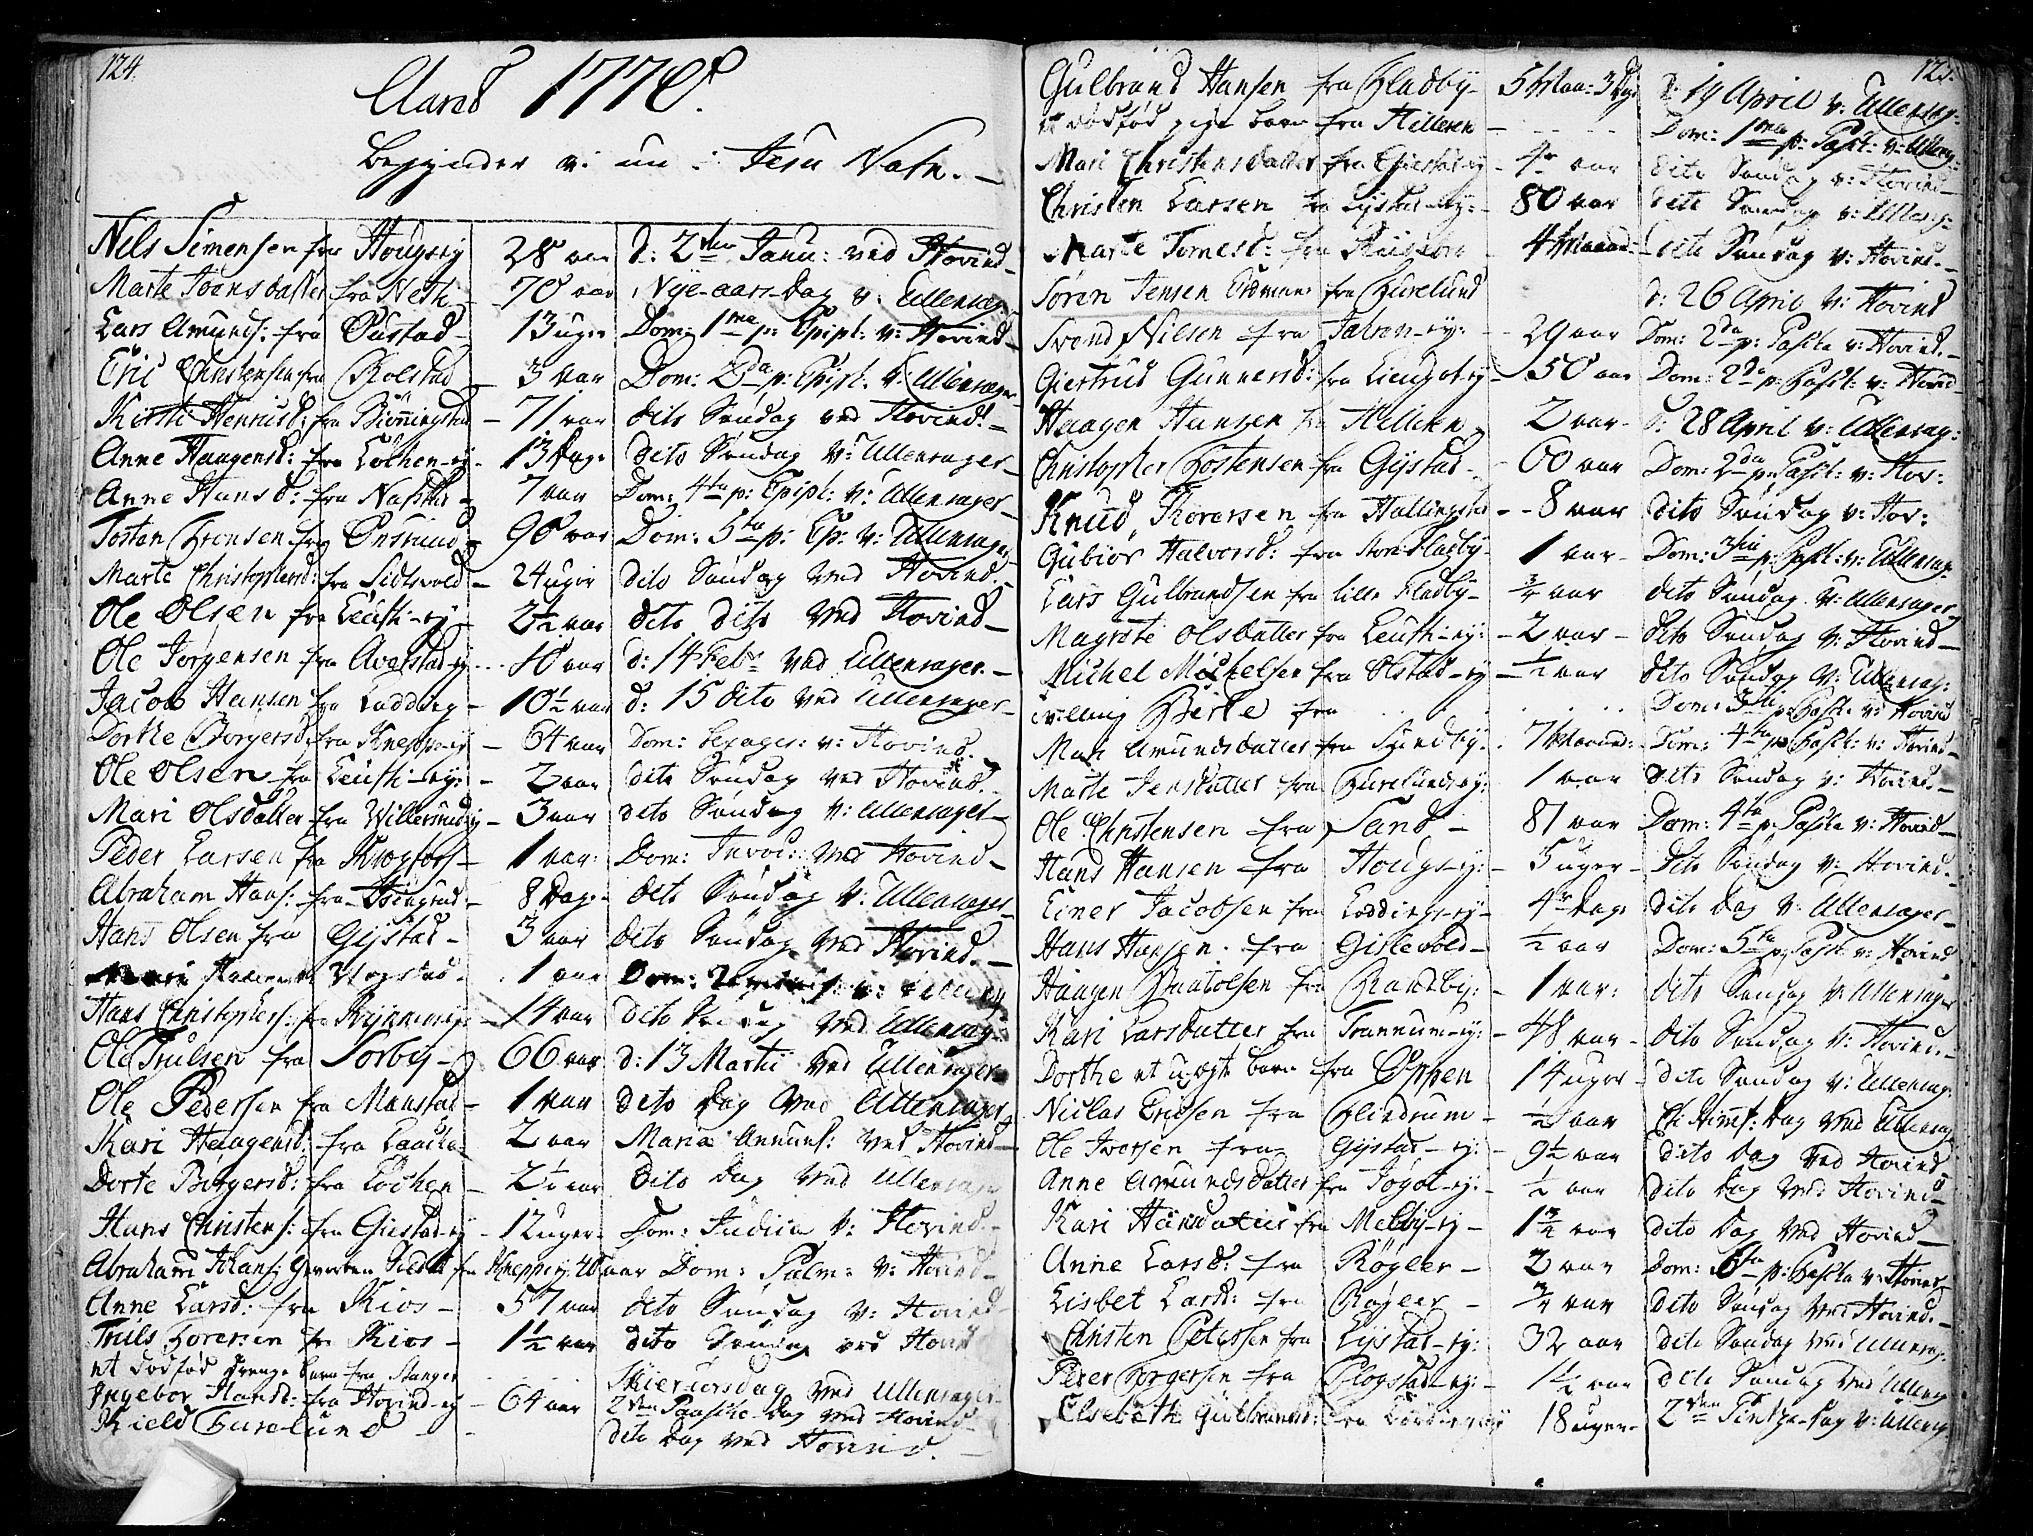 124.
Aared 1778.
begynder vi nu i Jesu Nafn.
Nils Simensen fra Hougs ey 28 aar d: 2den Janu: ved Hovind
Marte Joensdatter fra Neth 70 aar Nye-aars-dag v: Ullensag:
Lars Amunds: fra Ørstad 13 uger Dom: 1ma p: Epiph: v: Hovind
Eric Christensen fra Rolstad 3 aar Dom: 2da p: Epiph: v: Ullensager
Kirsti Henriisd: fra 71 aar dito Søndag ved Hovind
Anne Haagensd: fra Løchen-ey 13 Dage dito Søndag v: Ullensager
Anne Hansd: fra 7 aar Dom: 4ta p: Epiph: v: Ullensager
Tostan fra Onsrud 90 aar Dom: 5ta p: Ep: v: Ullensager
Marte Christophersd: fra 24 uger dito Søndag ved Hovind
Ole Olsen fra Leusti-ey 2½ aar dito dito ved Hovind
Ole Jørgensen fra 40 aar d: 14 Febr ved Ullensager
Jacob Hansen fra 10½ aar d: 15 dito ved Ullensager
Dorthe Borgersd: fra Kneppe-ey 64 aar Dom: Sexages: v: Hovind
Ole Olsen fra Leusti-ey: 2 aar dito Søndag ved Hovind
Mari Olsdatter fra Willersrud-ey 3 aar dito Søndag v: Ullensager
Peder Larsen fra Krogfos 1 aar Dom: Invoc: ved Hovind
Abraham Hans: fra 8 Dage dito Søndag v: Ullensager
Hans Olsen fra Gystad 3 aar dito Søndag ved Hovind
Mari 1 aar Dom:
Hans Christophers: fra 14 aar dito ved Ullensag:
Ole Trulsen fra Sørby 66 aar d: 13 Martii ved Ullensager
Ole Pedersen fra Manstad 1 aar dito Dag ved Ullensager
Kari Haagensd: fra Laacke 2 aar Maria Annuns: ved Hovind
Dorte Borgersd: fra Løchen 2½ aar dito Dag ved Ullensager
Hans Christens: fra Gistad-ey 12 uger Dom: Judica v: Hovind
Abraham Johans: Geworben Soldat fra Kneppe ey 40 aar Dom: Palm: v: Hovind
Anne Larsd: fra Kios 57 aar dito Søndag v: Hovind
Truls fra Kios 1½ aar dito Søndag ved Hovind
et dødfød drenge barn fra Hanger Skiertorsdag ved Ullensager
Ingebor Hansd: fra Hovind-ey 64 aar 2den Paasche-dag ved Hovind
Kield Furelund dito Dag ved Hovind.
125.
Gulbrand Hansen fra Fladby 5 Maa: 3 Dage d: 19 April v: Ullensag:
et dødfød pige barn fra Hilleren Dom: 1ma p: Pasch: v: Ullensag:
Mari Christensdatter fra Gistad-ey 4 aar dito Søndag v: Hovind
Christen Larsen fra Gystad-ey: 80 aar dito Søndag v: Ullensag:
Marte fra 4 Maaned: dito Søndag v: Hovind
Søren Jensen fra Furelund d: 26 April v: Hovind
Svend Nilsen fra 29 aar Dom: 2da p: Pascha v: Hovind
Giertrud Gunnersd: fra 50 aar Dom: 2da p: Pasch: v: Hovind
Haagen Hansen fra 2 aar d: 28 April v: Ullensag:
Christopher fra Gystad 60 aar Dom: 2da p: Pasch: v: Hov:
Knud fra Hallingstad 8 aar dito Søndag v: Hov:
Gubior Halvorsd: fra store Fladby 1 aar Dom: 3tia p: Pasch: v: Ullensag:
Lars Gulbrandsen fra lille Fladby ¾ aar dito Søndag v: Ullensager
Magrete Olsdatter fra Leusti-ey: 2 aar dito Søndag v: Hovind
Michel Michelsen fra Olstad-ey ½ aar dito Søndag v: Ullensag:
tvilling Berte fra Dom: 3tia p: Pasch: v: Hovind
Mari Amundsdatter fra 7 Maaned: Dom: 4ta p: Pasch: v: Hovind
Marte Jensdatter fra Furelunds-ey: 1 aar dito Søndag v: Hovind
Ole Christensen fra Sand 81 aar Dom: 4ta p: Pascha v: Hovind
Hans Hansen fra Hougs-ey: 5 uger dito Søndag v: Hovind
Einer Jacobsen fra Loddings-ey 4 Dage dito Dag v: Ullensager
Hans Hansen fra Gislevold ½ aar Dom: 5ta p: Pasch: v: Hovind
Haagen fra Brandby: 1 aar: dito Søndag v: Ullensager
Kari Larsdatter fra Trannum-ey: 48 aar dito Søndag v: Hovind
Dorthe et uægte barn fra Oppen 14 uger dito Søndag v: Ullensag:
Niclas fra ½ aar Chr: Himf: Dag ved Ullensag:
Ole Iversen fra Gystad-ey: 9½ aar dito Dag ved Hovind
Anne Amundsdatter fra ½ aar dito Dag ved Hovind
Kari Hansdatter fra Melby-ey 1¾ aar dito Dag ved Hovind
Anne Larsd: fra Røgler 2 aar Dom: 6ta p: Pascha v: Hovind
Lisbet Larsd: fra Røgler ¾ aar dito Søndag ved Hovind
Christen Petersen fra Gystad-ey: 32 aar dito Søndag ved Ullensag:
Peder fra Algstad-ey: 1½ aar dito Søndag ved Ullensag:
Elsebeth Gulbrandsd: fra 18 uger 2den Pintze-dag v: Ullensag: